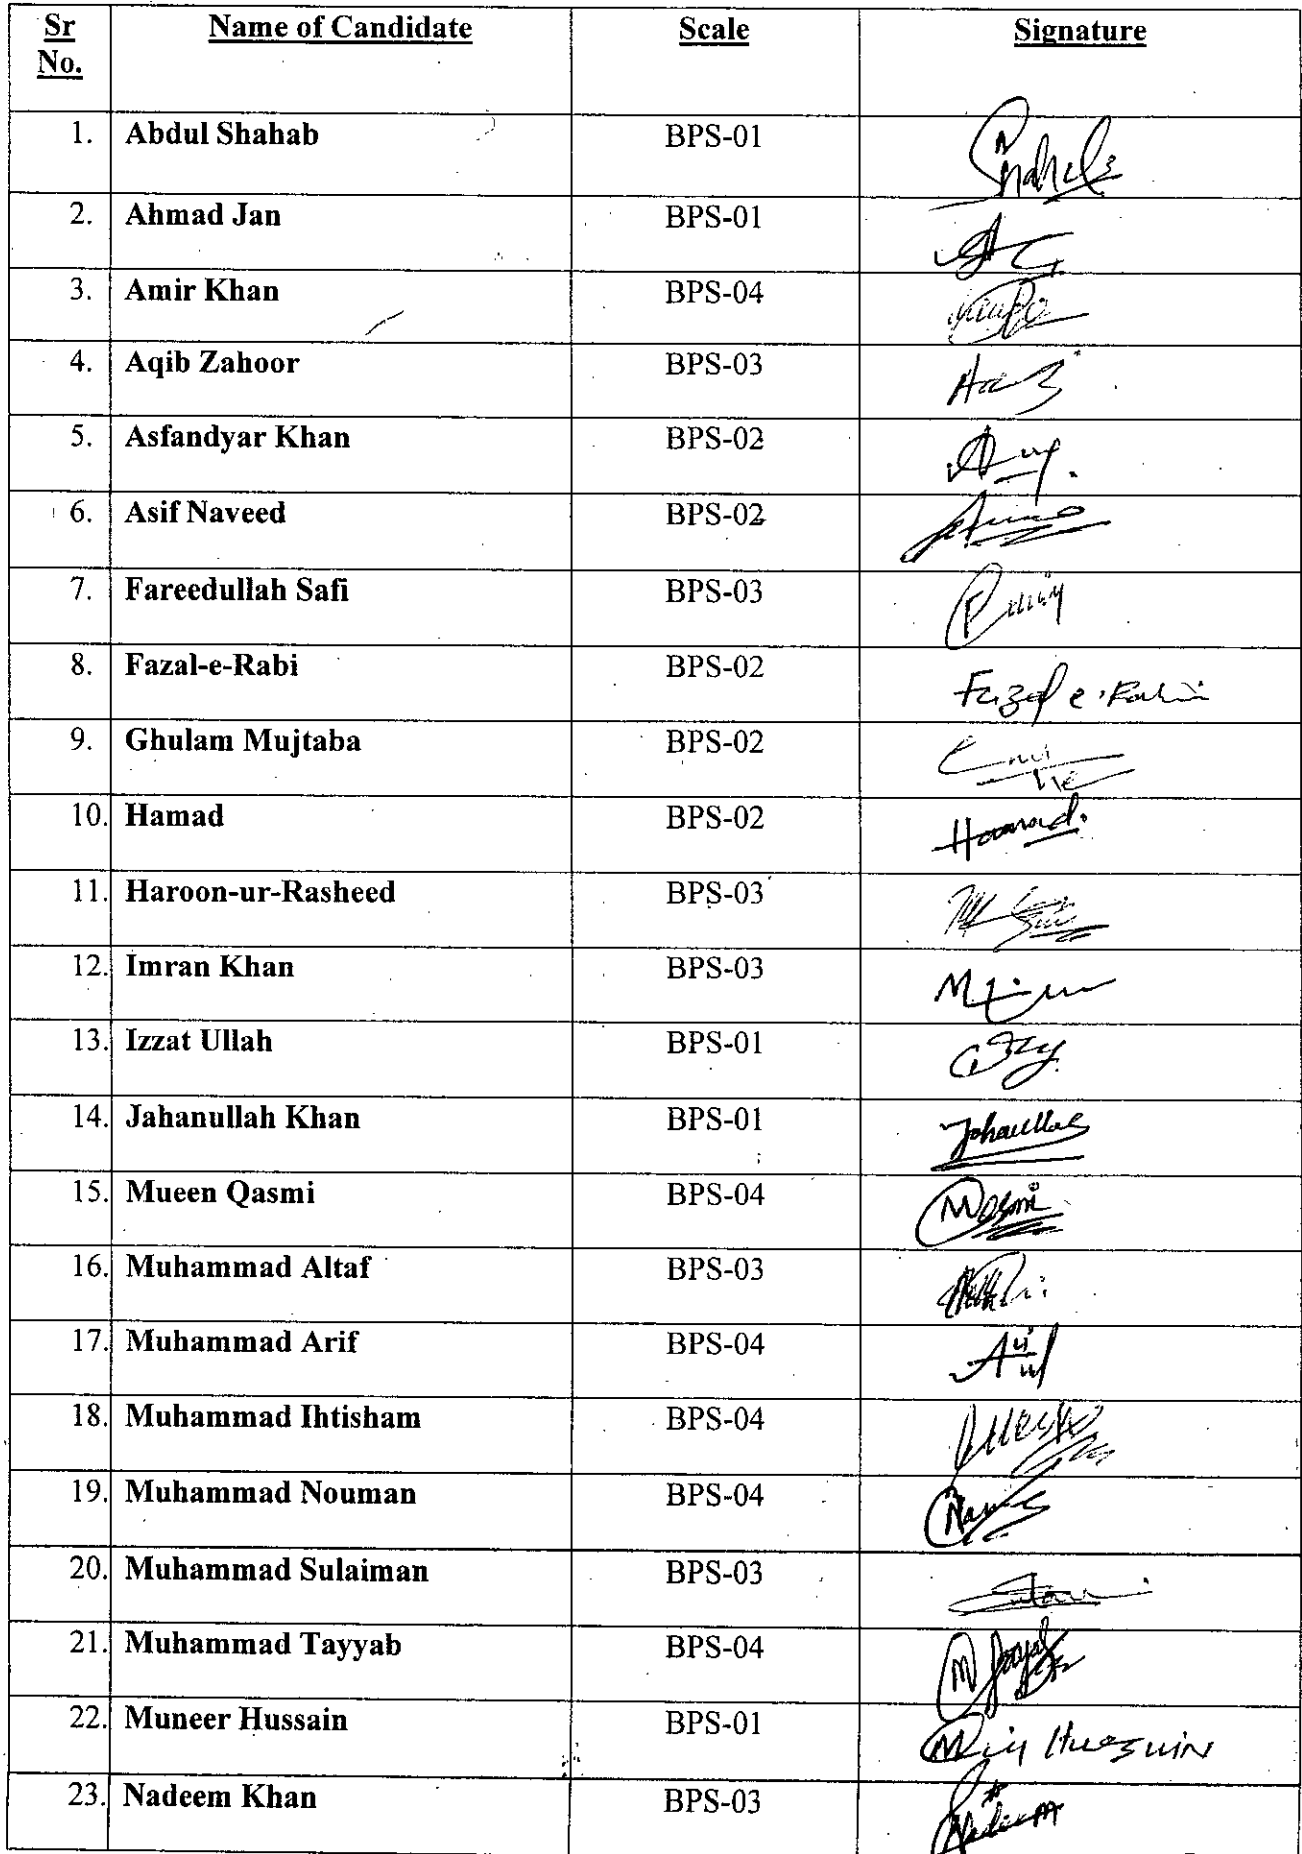 Sr No. Name of Candidate Scale Signature
1. Abdul Shahab BPS-01
2. Ahmad Jan BPS-01
3. Amir Khan BPS-04
4. Aqib Zahoor BPS-03
5. Asfandyar Khan BPS-02
6. Asif Naveed BPS-02
7. Fareedullah Safi BPS-03
8. Fazal-e-Rabi BPS-02
9. Ghulam Mujtaba BPS-02
10. Hamad BPS-02
11. Haroon-ur-Rasheed BPS-03
12. Imran Khan BPS-03
13. Izzat Ullah BPS-01
14. Jahanullah Khan BPS-01
15. Mueen Qasmi BPS-04
16. Muhammad Altaf BPS-03
17. Muhammad Arif BPS-04
18. Muhammad Ihtisham BPS-04
19. Muhammad Nouman BPS-04
20. Muhammad Sulaiman BPS-03
21. Muhammad Tayyab BPS-04
22. Muneer Hussain BPS-01
23. Nadeem Khan BPS-03